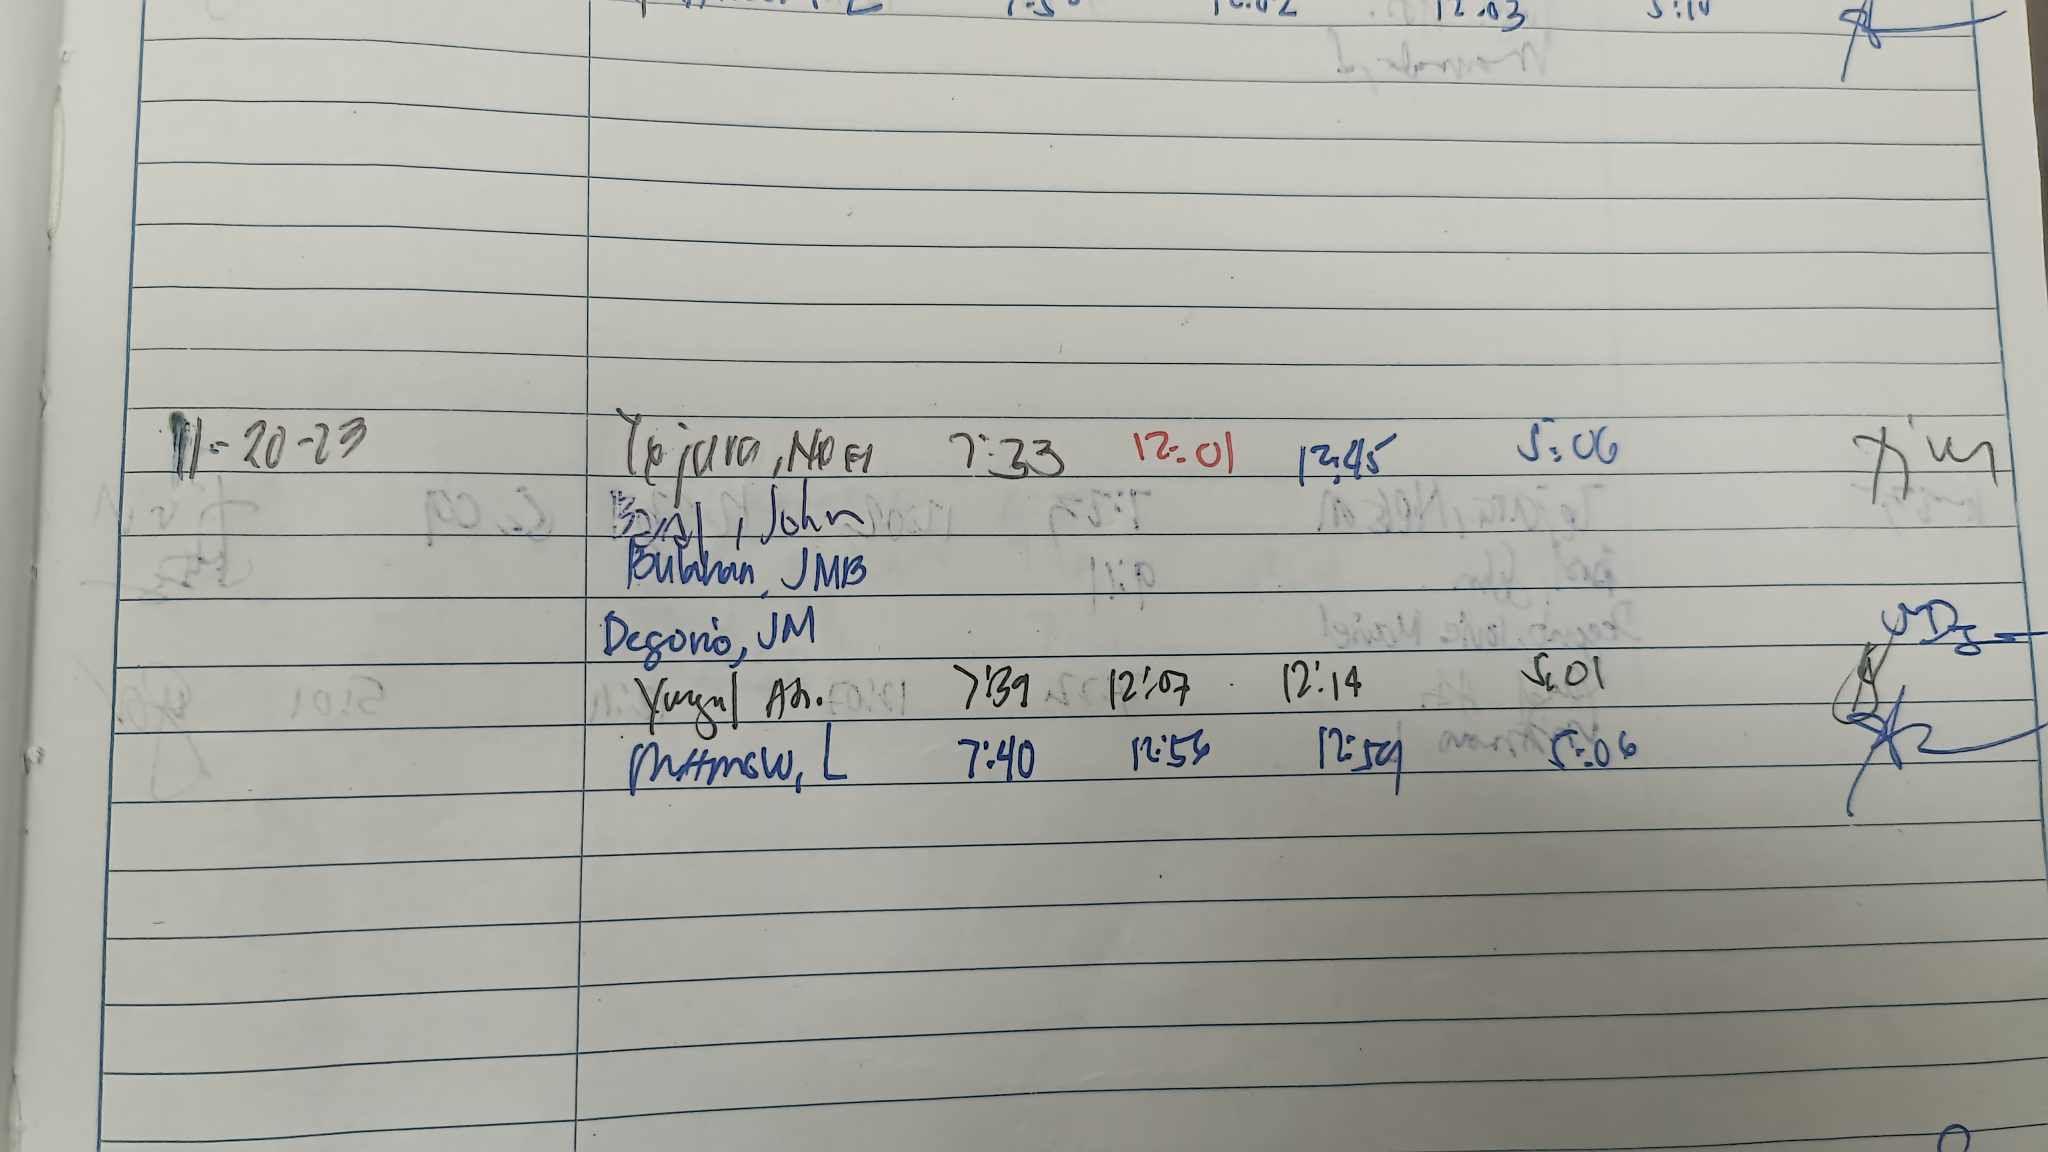 12:02 12:03 5:10
11-20-23 Tejara, Noel 7:33 12:01 12:45 5:06
John
Bulahan, JMB
Degorio, JM
7:39 12:07 12:14 5:01
L 7:40 12:56 12:59 5:06